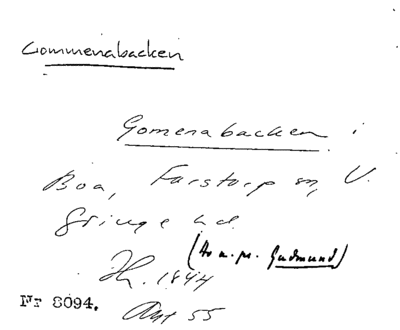 Gommenabacken
Gomenabacken i
Boa, Farstorp sn, V.
Göinge hd.
(Av m.pr. Gudmund)
Jh. 1844
Nr 8094.
Ant 55